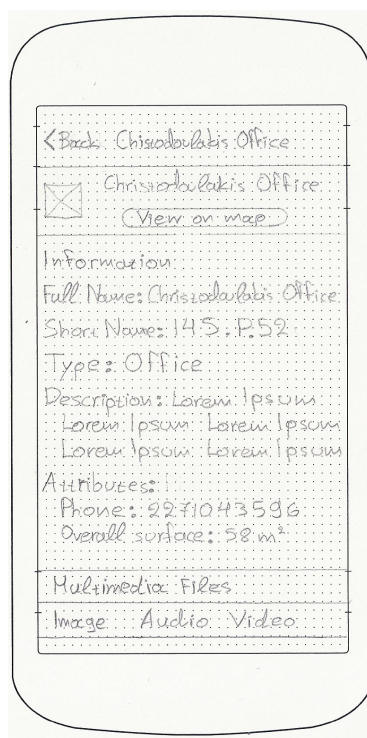 < Back Chisrodoulakis Office
Chrisrodoulakis Office
View on map
Information
Full Name: Chrisrodoulakis Office
Short Name: 145.P.52
Type: Office
Description: Lorem Ipsum
Lorem Ipsum Lorem Ipsum
Lorem Ipsum Lorem Ipsum
Attributes:
Phone: 2271043596
Overall surface: 58 m²
Multimedia Files
Image Audio Video